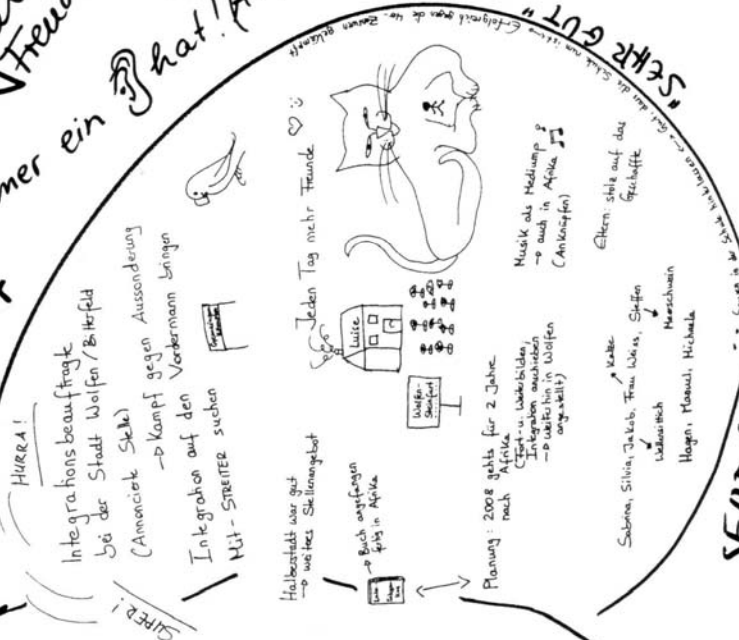 Freu
mer ein
hat!
"SEHR GUT"
HURRA!
SUPER!
Integrationsbeauftragte
bei der Stadt Wolfen/Bitterfeld
(Annoncierte Stelle)
→ Kampf gegen Aussonderung
Integration auf den Vordermann bringen
Mit-STREITER suchen
Jeden Tag mehr Freunde
Luise
Wolfen-
Steinfurt
Halberstadt war gut
→ weiteres Stellenangebot
→ Buch angefangen
fertig in Afrika
Planung: 2008 gehts für 2 Jahre
nach Afrika
(Fort- u. Weiterbilden,
Integration anschieben
→ weiterhin in Wolfen
angestellt)
Musik als Medium
→ auch in Afrika
(Anknüpfen)
Eltern: stolz auf das
Geschaffte
Katze
Sabrina, Silvia, Jakob, Frau Weiss, Steffen
Wellensittich
Meerschwein
Hagen, Manuel, Michaela